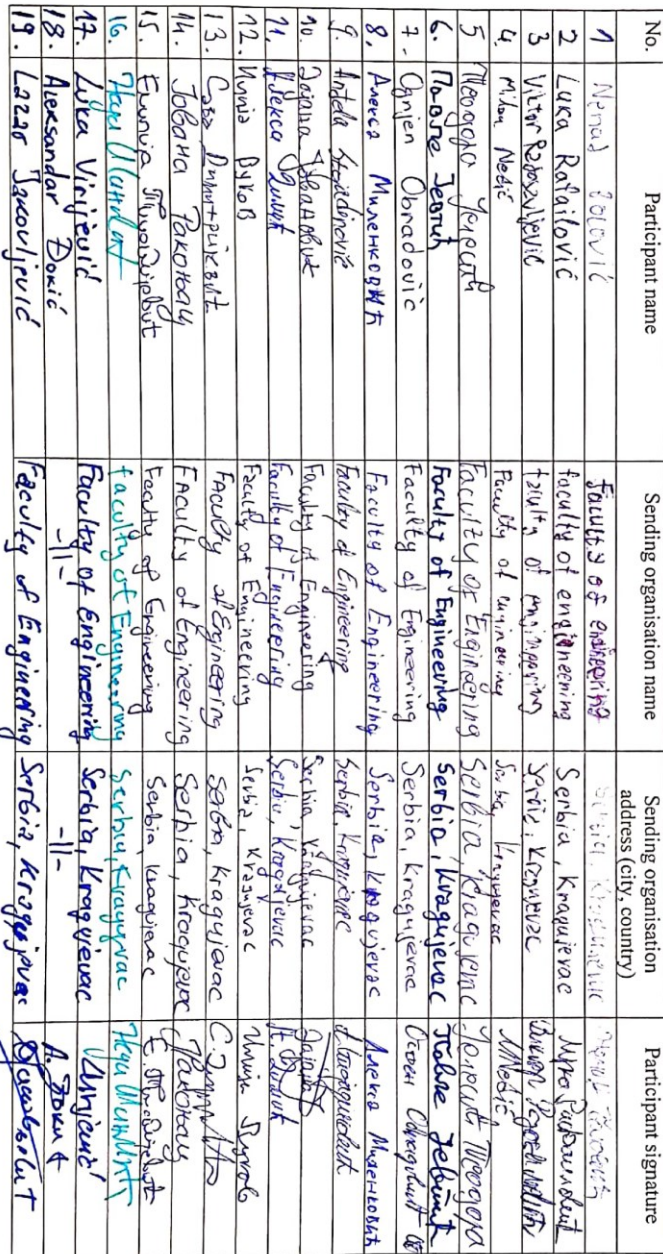 No. Participant name Sending organisation name Sending organisation address (city, country) Participant signature
1 Nenad Faculty of engineering
2 Luka Rafailović faculty of engineering Serbia, Kragujevac
3 Viktor faculty of engineering Serbia, Kragujevac
4. Milan Nedić Faculty of engineering Serbia, Kragujevac
5 Теодора Faculty of Engineering Serbia, Kragujevac Теодора
6. Павле Јевтић Faculty of Engineering Serbia, Kragujevac Павле Јевтић
7. Ognjen Obradović Faculty of Engineering Serbia, Kragujevac Огњен Обрадовић
8. Алекса Миленковић Faculty of Engineering Serbia, Kragujevac Алекса Миленковић
9. Anđela Faculty of Engineering Serbia, Kragujevac
10. Јована Јовановић Faculty of Engineering Serbia, Kragujevac
11. Алекса Faculty of Engineering Serbia, Kragujevac
12. Илија Вуков Faculty of Engineering Serbia, Kragujevac Илија Вуков
13. Сава Димитријевић Faculty of Engineering Serbia, Kragujevac
14. Јована Ракоњац Faculty of Engineering Serbia, Kragujevac Ракоњац
15. Емилија Faculty of Engineering Serbia, Kragujevac
16. Faculty of Engineering Serbia, Kragujevac
17. Luka Virijević Faculty of Engineering Serbia, Kragujevac
18. Aleksandar Đokić -||- -||- А. Ђокић
19. Lazar Jakovljević Faculty of Engineering Serbia, Kragujevac